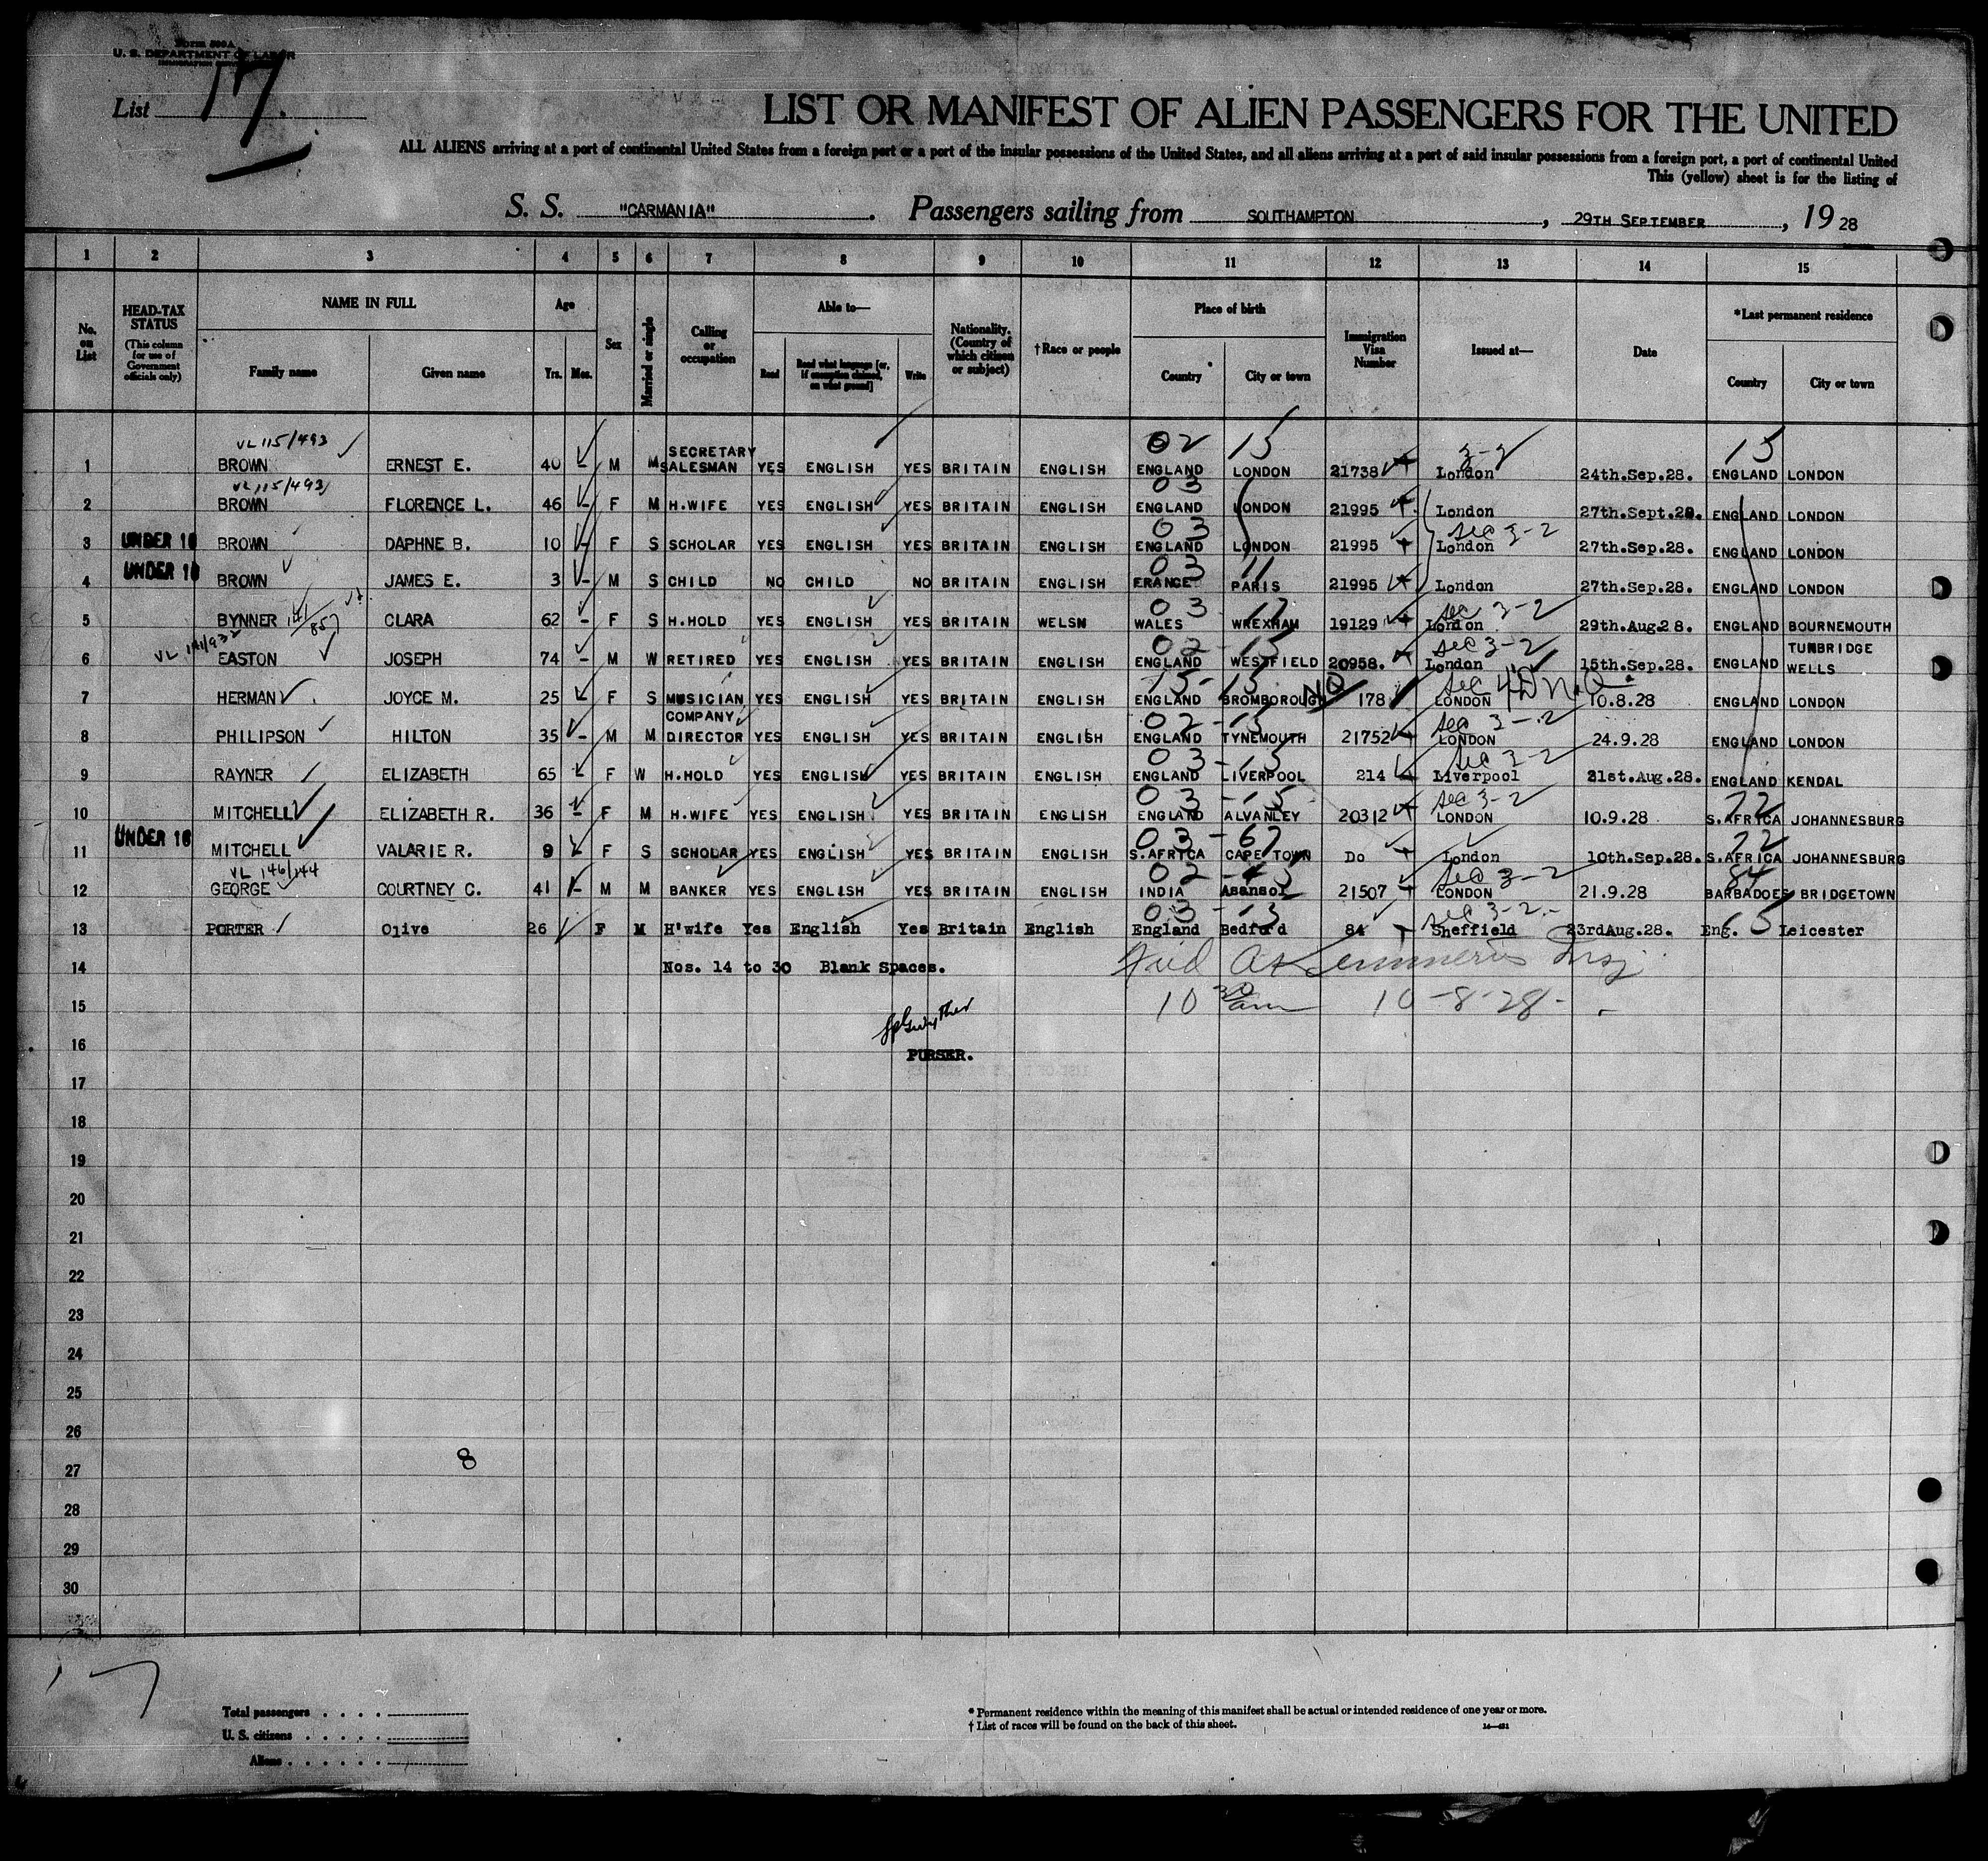 Form 500A
U. S. DEPARTMENT OF LABOR
IMMIGRATION SERVICE
List 17.
LIST OR MANIFEST OF ALIEN PASSENGERS FOR THE UNITED
ALL ALIENS arriving at a port of continental United States from a foreign port or a port of the insular possessions of the United States, and all aliens arriving at a port of said insular possessions from a foreign port, a port of continental United
This (yellow) sheet is for the listing of
S. S. "CARMANIA". Passengers sailing from SOUTHAMPTON, 29TH SEPTEMBER, 19 28
1 2 3 4 5 6 7 8 9 10 11 12 13 14 15
No. on List
HEAD-TAX STATUS (This column for use of Government officials only)
NAME IN FULL Family name Given name
Age Yrs. Mos.
Sex
Married or single
Calling or occupation
Able to— Read Read what language [or, if exemption claimed, on what ground] Write
Nationality. (Country of which citizen or subject)
†Race or people
Place of birth Country City or town
Immigration Visa Number
Issued at—
Date
*Last permanent residence Country City or town
VL 115/493 02 15 3-2 15
1 BROWN ERNEST E. 40 - M M SECRETARY SALESMAN YES ENGLISH YES BRITAIN ENGLISH ENGLAND LONDON 21738 London 24th.Sep.28. ENGLAND LONDON
VL 115/493 03
2 BROWN FLORENCE L. 46 - F M H.WIFE YES ENGLISH YES BRITAIN ENGLISH ENGLAND LONDON 21995 London 27th.Sept.28. ENGLAND LONDON
03 Sec 3-2
3 UNDER 16 BROWN DAPHNE B. 10 - F S SCHOLAR YES ENGLISH YES BRITAIN ENGLISH ENGLAND LONDON 21995 London 27th.Sep.28. ENGLAND LONDON
03 11
4 UNDER 16 BROWN JAMES E. 3 - M S CHILD NO CHILD NO BRITAIN ENGLISH FRANCE PARIS 21995 London 27th.Sep.28. ENGLAND LONDON
141/857 03 17 Sec 3-2
5 BYNNER CLARA 62 - F S H.HOLD YES ENGLISH YES BRITAIN WELSH WALES WREXHAM 19129 London 29th.Aug.28. ENGLAND BOURNEMOUTH
VL 141/932 02-15 Sec 3-2
6 EASTON JOSEPH 74 - M W RETIRED YES ENGLISH YES BRITAIN ENGLISH ENGLAND WESTFIELD 20958. London 15th.Sep.28. ENGLAND TUNBRIDGE WELLS
15-15 NQ Sec 4D N.Q.
7 HERMAN JOYCE M. 25 - F S MUSICIAN YES ENGLISH YES BRITAIN ENGLISH ENGLAND BROMBOROUGH 178 LONDON 10.8.28 ENGLAND LONDON
02-15 Sec 3-2
8 PHILIPSON HILTON 35 - M M COMPANY DIRECTOR YES ENGLISH YES BRITAIN ENGLISH ENGLAND TYNEMOUTH 21752 LONDON 24.9.28 ENGLAND LONDON
03-15 Sec 3-2
9 RAYNER ELIZABETH 65 - F W H.HOLD YES ENGLISH YES BRITAIN ENGLISH ENGLAND LIVERPOOL 214 Liverpool 21st.Aug.28. ENGLAND KENDAL
03-15 Sec 3-2 72
10 MITCHELL ELIZABETH R. 36 - F M H.WIFE YES ENGLISH YES BRITAIN ENGLISH ENGLAND ALVANLEY 20312 LONDON 10.9.28 S.AFRICA JOHANNESBURG
03-67 72
11 UNDER 16 MITCHELL VALARIE R. 9 - F S SCHOLAR YES ENGLISH YES BRITAIN ENGLISH S.AFRICA CAPE TOWN Do London 10th.Sep.28. S.AFRICA JOHANNESBURG
VL 146/144 02 Sec 3-2 84
12 GEORGE COURTNEY C. 41 - M M BANKER YES ENGLISH YES BRITAIN ENGLISH INDIA Asansol 21507 LONDON 21.9.28 BARBADOES BRIDGETOWN
03-13 Sec 3-2.-
13 PORTER Olive 26 F M H'wife Yes English Yes Britain English England Bedford 84 Sheffield 23rdAug.28. Eng. 15 Leicester
14 Nos. 14 to 30 Blank Spaces.
15 10 30 am 10-8-28-
16 PURSER.
17
18
19
20
21
22
23
24
25
26
27 8
28
29
30
17
Total passengers
U. S. citizens
Aliens
* Permanent residence within the meaning of this manifest shall be actual or intended residence of one year or more.
† List of races will be found on the back of this sheet.